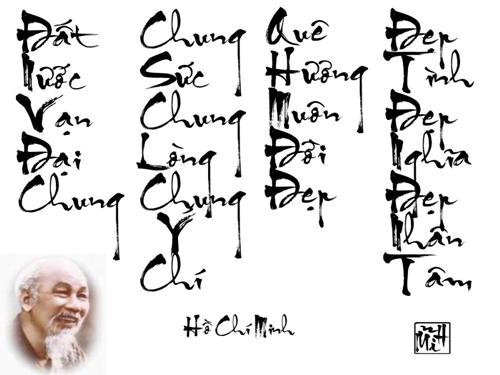 Đất
Nước
Vạn
Đại
Chung
Chung
Sức
Chung
Lòng
Chung
Ý
Chí
Quê
Hương
Muôn
Đời
Đẹp
Đẹp
Tình
Đẹp
Nghĩa
Đẹp
Nhân
Tâm
Hồ Chí Minh